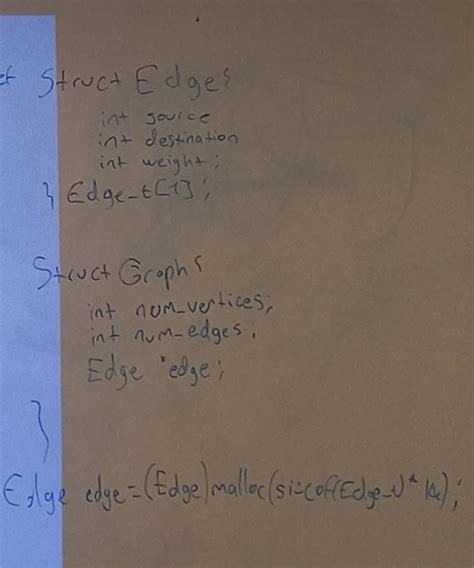 ef Struct Edge {
int source
int destination
int weight;
} Edge_t[1];
Struct Graph {
int num_vertices;
int num_edges;
Edge *edge;
}
Edge edge = (Edge) malloc(sizeof(Edge_t)*